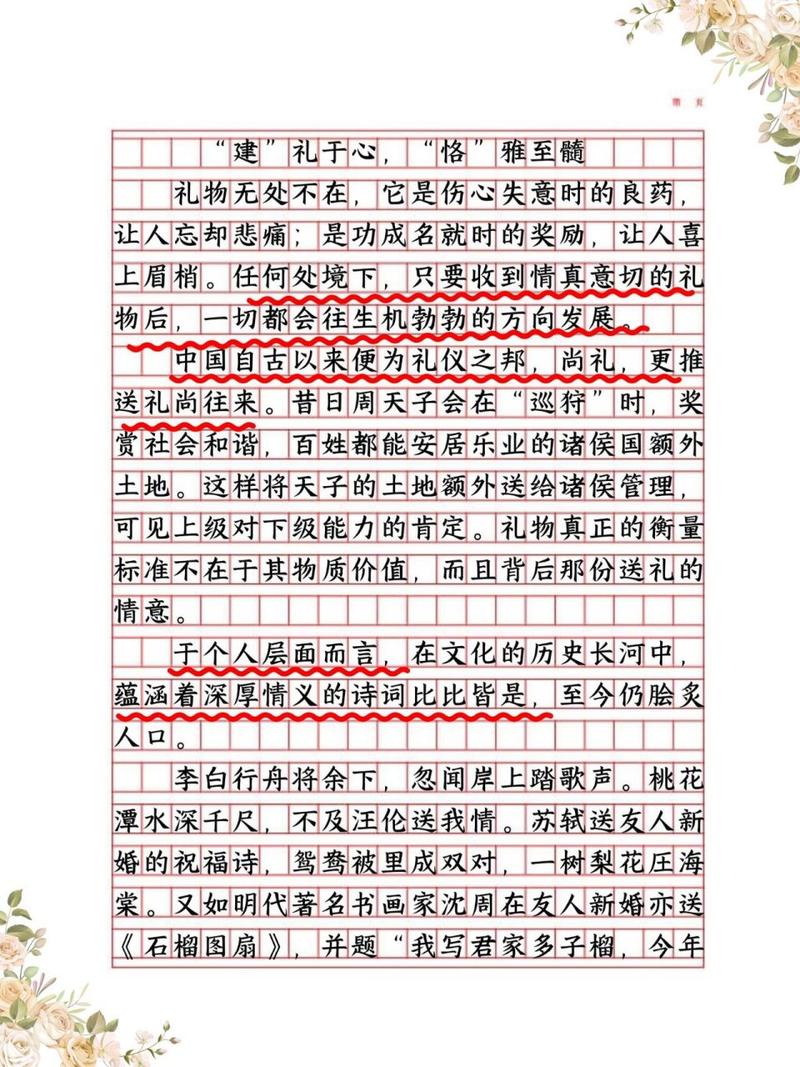 第 页
“建”礼于心，“恪”雅至髓
礼物无处不在，它是伤心失意时的良药，
让人忘却悲痛；是功成名就时的奖励，让人喜
上眉梢。任何处境下，只要收到情真意切的礼
物后，一切都会往生机勃勃的方向发展。
中国自古以来便为礼仪之邦，尚礼，更推
送礼尚往来。昔日周天子会在“巡狩”时，奖
赏社会和谐，百姓都能安居乐业的诸侯国额外
土地。这样将天子的土地额外送给诸侯管理，
可见上级对下级能力的肯定。礼物真正的衡量
标准不在于其物质价值，而且背后那份送礼的
情意。
于个人层面而言，在文化的历史长河中，
蕴涵着深厚情义的诗词比比皆是，至今仍脍炙
人口。
李白行舟将余下，忽闻岸上踏歌声。桃花
潭水深千尺，不及汪伦送我情。苏轼送友人新
婚的祝福诗，鸳鸯被里成双对，一树梨花压海
棠。又如明代著名书画家沈周在友人新婚亦送
《石榴图扇》，并题“我写君家多子榴，今年